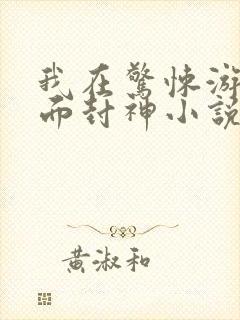 我在驚悚游
而封神小說
黃淑和